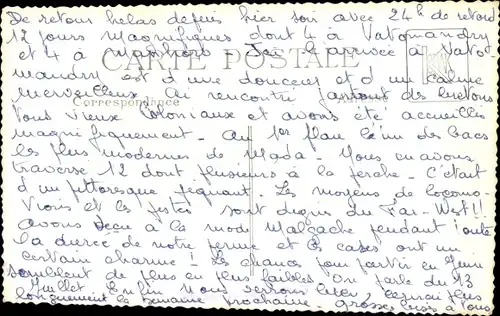 De retour helas depuis hier soir avec 24h de retard
12 jours magnifiques dont 4 à Vatomandry
et 4 à
CARTE POSTALE
l'arrivée à Vato
mandry est d'une douceur et d'un calme
merveilleux. Ai rencontré partout des bretons
Correspondance
tout vieux Coloniaux et avons été accueillis
magnifiquement - Au 1er plan l'un des bacs
les plus modernes de Mada - Nous en avons
traversé 12 dont plusieurs à la perche - C'était
d'un pittoresque piquant - Les moyens de locomo-
et les pistes sont dignes du Far-West!!
avons vécu à la mode Malgache pendant toute
la durée de notre et les cases ont un
certain charme! Les chances pour partir en Juin
semblent de plus en plus faibles. On parle du 13
Juillet Enfin nous verrons bien,
longuement la semaine prochaine - grosses bises à tous